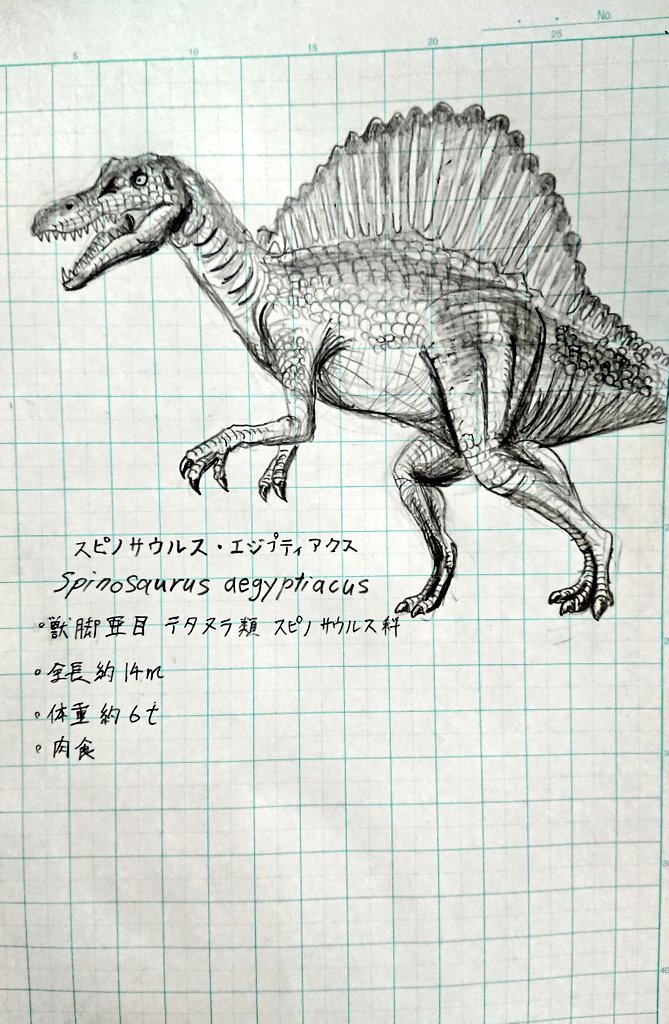 No.
5 10 15 20 25
スピノサウルス・エジプティアクス
Spinosaurus aegyptiacus
・獣脚亜目 テタヌラ類 スピノサウルス科
・全長約14m
・体重約6t
・肉食
40